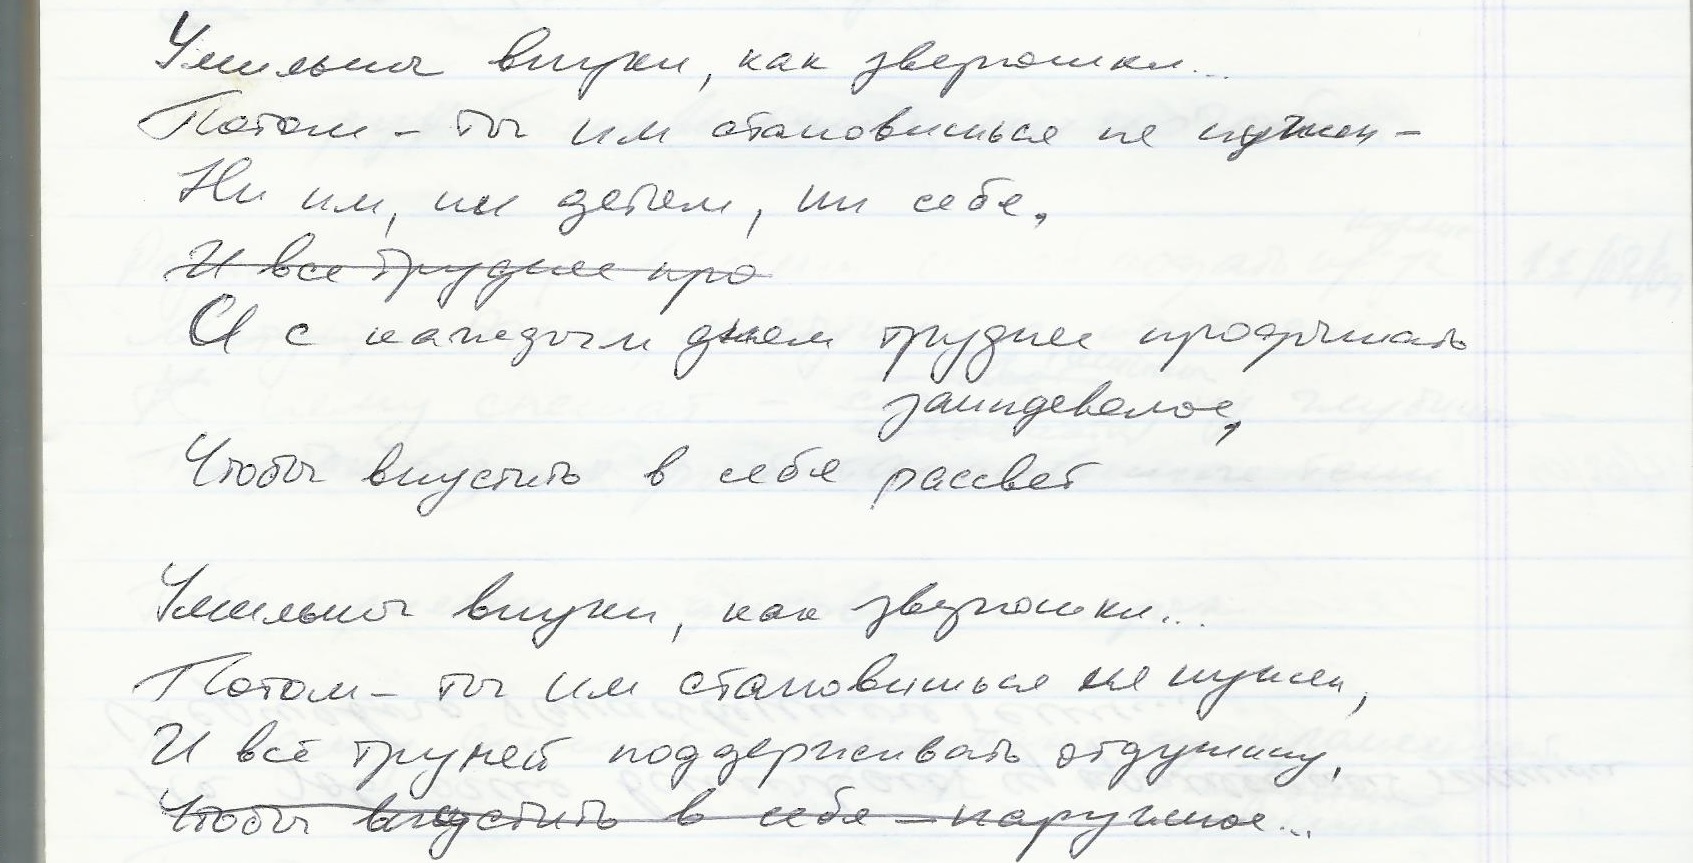 Умильны внуки, как зверюшки...
Потом – ты им становишься не нужен –
Ни им, ни детям, ни себе,
И все труднее про
И с каждым днем труднее продышать
заиндевелое,
Чтобы впустить в себя рассвет
Умильны внуки, как зверюшки...
Потом – ты им становишься не нужен,
И всё трудней поддерживать отдушину,
Чтобы впустить в себя – наружное...